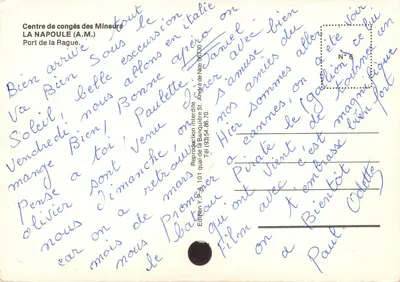 Centre de congés des Mineurs
LA NAPOULE (A.M.)
Port de la Rague.
Bien arrivé tout
Va Bien Sous le
Soleil, belle excursion
Vendredi nous allons en Italie
mange Bien, Bonne apéro on
Pense a toi. Paulette, Daniel
olivier sont venu avec
nous Dimanche on s'amuse bien
car on a retrouvé nos amies du
mois de mars Hier sommes aller
nous Promener a cannes, on a été voir
le bateau Pirate le (galion)
qu'ont vient de faire un
Film avec c'est magnifique
on t'embrasse bien fort
a Bientôt
Paul Odette
Reproduction interdite
Edition Y. P. A. 101 quai de la Banquière St. André de Nice 06730
Tél (93)54.86.70